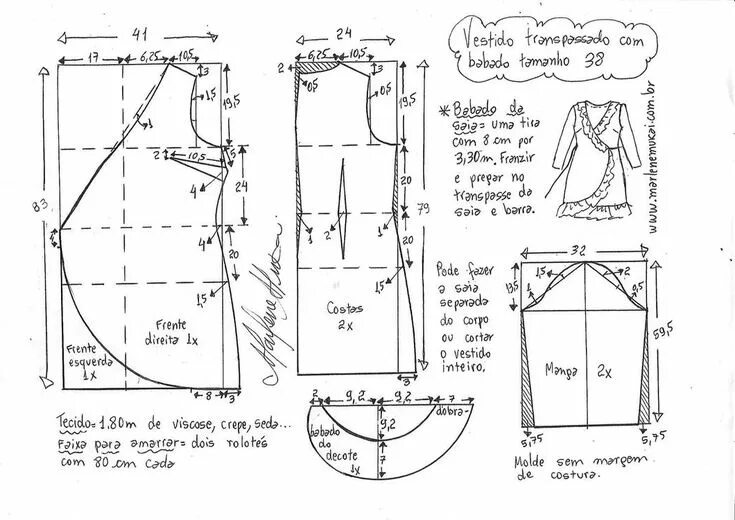 Vestido transpassado com
babado tamanho 38
41
17
6,25
10,5
3
1,5
19,5
1
2
10,5
5
4
24
4
83
4
20
1,5
Frente
direita 1x
Frente
esquerda
1x
8
3
Marlene Mukai
24
6,25
10,5
2
3
0,5
1,5
19,5
0,5
20
1
2
1
79
20
1,5
Costas
2x
3
* Babado da
saia = uma tira
com 8 cm por
3,30m. Franzir
e prepar no
transpasse da
saia e barra.
www.marlenemukai.com.br
Pode fazer
a saia
separada
do corpo
ou cortar
o vestido
inteiro.
32
13,5
1,5
2
1
0,5
59,5
Manga
2x
5,75
5,75
Molde sem margem
de costura.
2
9,2
9,2
7
dobra
9,2
babado
do
decote
1x
7
Tecido = 1.80m de viscose, crepe, seda...
Faixa para amarrar = dois rolotês
com 80 cm cada